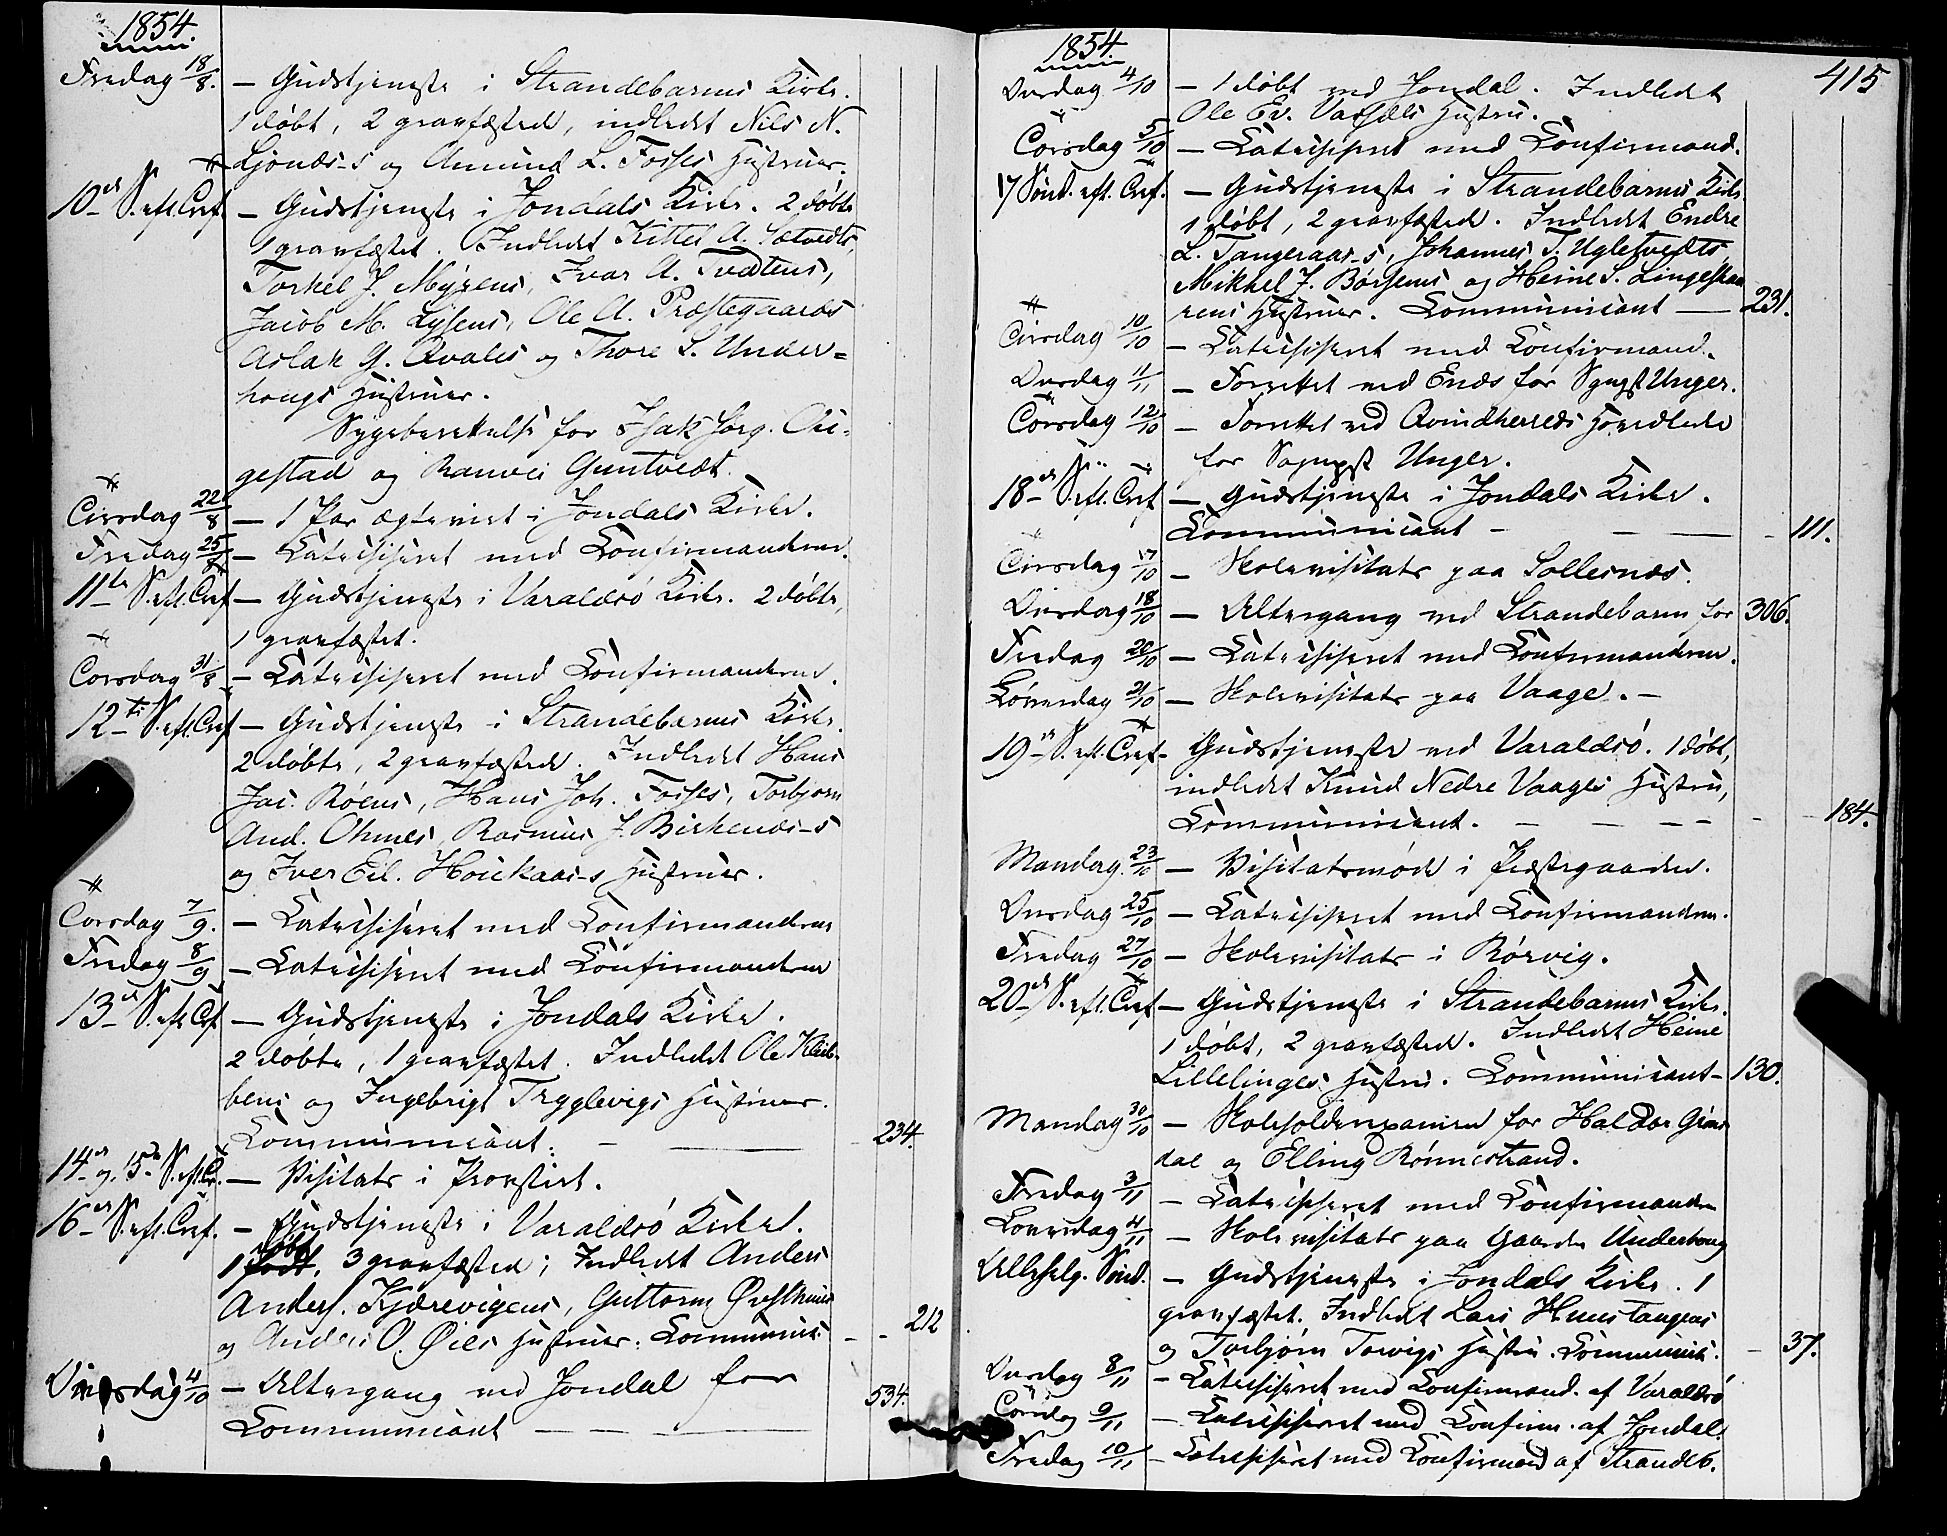 1854.
Fredag 18/8. — Gudstjeneste i Strandebarms Kirke.
1 døbt, 2 gravfæstede, indledet Nils N.
Ljonæs-s og Amund L. Fosses Hustruer.
10de S. eft. Tref. — Gudstjeneste i Jondals Kirke. 2 døbte
1 gravfæstet. Indledet Kittel A. Sætvedts,
Torkel J. Myrens, Ivar A. Tvætens,
Jacob M. Lysens, Ole A. Præstegaards
Aslak G. Qvales og Thore S. Under-
hougs Hustruer.
Sygeberettelse for Isak Jorg.
gestad og Ranvei Guntvedt.
Tirsdag 22/8 — 1 Par ægteviet i Jondals Kirke.
Fredag 25/8 — Catechiseret med Confirmanderne.
11te S. eft. Tref — Gudstjeneste i Varaldsö Kirke. 2 døbte,
1 gravfæstet.
Torsdag 31/8 — Catechiseret med Confirmanderne.
12te S. eft. Tref — Gudstjeneste i Strandebarms Kirke.
2 døbte, 2 gravfæstede. Indledet Hans
Jac. Röens, Hans Joh. Fosses, Torbjørn
And. Omnes, Rasmus J. Birkenæs-s
og Iver Eil. Houkaas-s Hustruer.
Torsdag 7/9. — Catechiseret med Confirmanderne
Fredag 8/9 — Catechiseret med Confirmanderne
13de S. eft Tref — Gudstjeneste i Jondals Kirke.
2 døbte, 1 gravfæstet. Indledet Ole
bens og Ingebrigt Tryglevigs Hustruer.
Communicant. — — 234
14de og 15de S. eft. Tr. — Visitats i Provstiet.
16de S. eft. Tref. — Gudstjeneste i Varaldsö Kirke.
1 døbt, 3 gravfæstede; Indledet Anders
Anders. Kjærevigens, Guttorm
og Anders O. Øies Hustruer. Communic: - - 212
Onsdag 4/10 — Altergang ved Jondal for
Communicant — — — 534.
1854.
415
Onsdag 4/10 — 1 døbt ved Jondal. Indledet
Ole Ev. Hustru.
Torsdag 5/10 — Catechiseret med Confirmand.
17 Sönd. eft. Tref. — Gudstjeneste i Strandebarms Kirke
1 døbt, 2 gravfæstede. Indledet Endre
L. Tangeraas-s, Johannes T. Ugletvedts,
Mikkel J. Børsens og Heine S. Lingeskaa
rens Hustruer. Communicant — 231.
Tirsdag 10/10 — Catechiseret med Confirmand.
Onsdag 11/11 — Forrettet ved Enæs for Sognepst Unger.
Torsdag 12/10 — Forrettet ved Qvindherreds Hovedkirke
for Sognepst Unger.
18de S. eft. Tref — Gudstjeneste i Jondals Kirke.
Communicant — — — 111.
Tirsdag 17/10 — Skolevisitats paa Sollesnæs.
Onsdag 18/10 — Altergang ved Strandebarm for 306.
Fredag 20/10 — Catechiseret med Confirmanderne.
Löverdag 21/10 — Skolevisitats paa Vaage. —
19de S. eft. Tref - Gudstjeneste ved Varaldsö. 1 døbt,
indledet Knud Nedre Vaages Hustru,
Communicant. — — — — 184.
Mandag. 23/10 — Visitatsmøde i Præstegaarden.
Onsdag 25/10 — Catechiseret med Confirmanderne.
Fredag 27/10 — Skolevisitats i Rörvig.
20de S. eft. Tref — Gudstjeneste i Strandebarms Kirke.
1 døbt, 2 gravfæstede. Indledet Heine
Lillelinges Hustru. Communicant — 130.
Mandag 30/10 — Skoleholderexamen for Haldor
dal og Elling Rønnestrand.
Fredag 3/11 — Catechiseret med Confirmanderne
Loverdag 4/11 — Skolevisitats paa Gaarden Underhoug
Allehelg. Sönd. — Gudstjeneste i Jondals Kirke. 1
gravfæstet. Indledet Lars
og Torbjørn Torvigs Hustru. Communic. — 37.
Onsdag 8/11 — Catechiseret med Confirmand. af Varaldsö
Torsdag 9/11 — Catechiseret med Confirm. af Jondal.
Fredag 10/11 — Catechiseret med Confirmand af Strandeb.